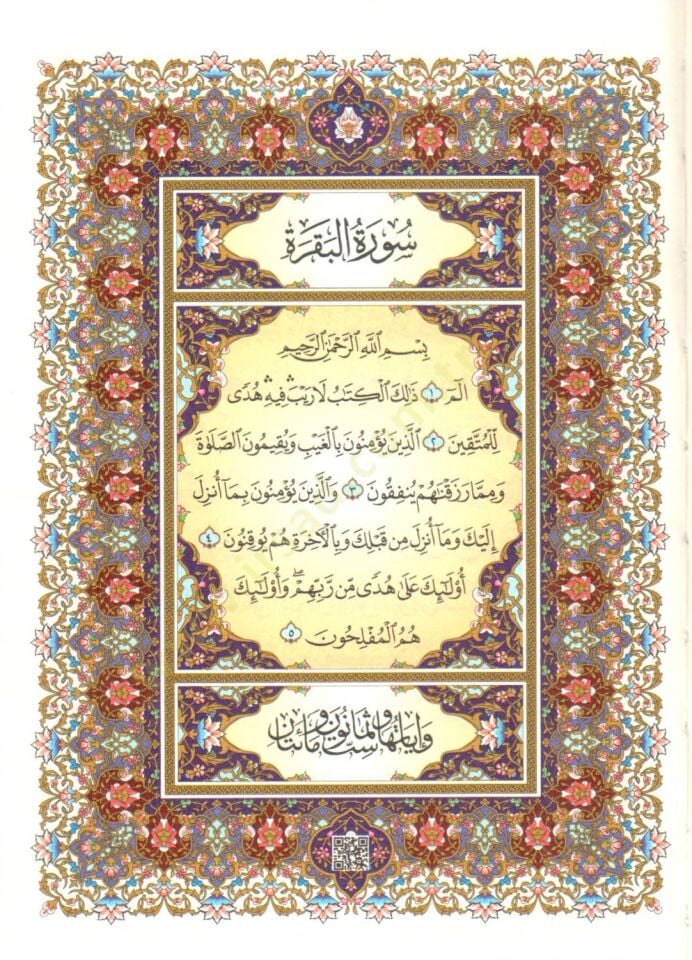 سُورَةُ الْبَقَرَةِ
بِسْمِ ٱللَّهِ ٱلرَّحْمَٰنِ ٱلرَّحِيمِ
الٓمٓ ١ ذَٰلِكَ ٱلْكِتَٰبُ لَا رَيْبَ ۛ فِيهِ ۛ هُدًى
لِّلْمُتَّقِينَ ٢ ٱلَّذِينَ يُؤْمِنُونَ بِٱلْغَيْبِ وَيُقِيمُونَ ٱلصَّلَوٰةَ
وَمِمَّا رَزَقْنَٰهُمْ يُنفِقُونَ ٣ وَٱلَّذِينَ يُؤْمِنُونَ بِمَآ أُنزِلَ
إِلَيْكَ وَمَآ أُنزِلَ مِن قَبْلِكَ وَبِٱلْءَاخِرَةِ هُمْ يُوقِنُونَ ٤
أُو۟لَٰٓئِكَ عَلَىٰ هُدًى مِّن رَّبِّهِمْ ۖ وَأُو۟لَٰٓئِكَ
هُمُ ٱلْمُفْلِحُونَ ٥
وَاٰيَاتُهَا سِتٌّ وَثَمَانُونَ وَمِائَتَانِ